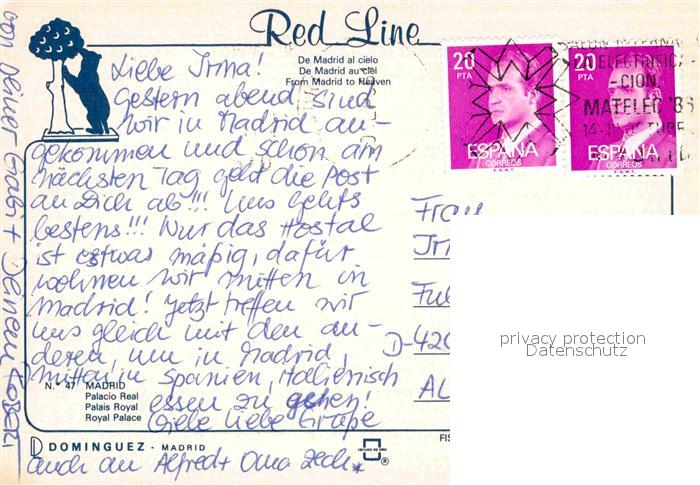 Red Line
De Madrid al cielo
De Madrid au ciel
From Madrid to Heaven
20
PTA
ESPAÑA
CORREOS
F.N.M.T.
20
PTA
ESPAÑA
CORREOS
F.N.M.T.
ELECTRIFICA-
CION
MATELEC '86
Liebe Irma!
Gestern abend sind
wir in Madrid an-
gekommen und schon am
nächsten Tag geht die Post
an Dich ab!!! Uns gehts
bestens!!! Nur das Hostal
ist etwas mäßig, dafür
wohnen wir mitten in
Madrid! Jetzt treffen wir
uns gleich mit den an-
deren, um in Madrid,
mitten in Spanien, Italienisch
essen zu gehen!
Viele liebe Grüße
auch an Alfred + Oma
von Deiner Gabi + Deinem Robert
Frau
D-420
privacy protection
Datenschutz
N.° 47 MADRID
Palacio Real
Palais Royal
Royal Palace
DOMINGUEZ - MADRID
FIS
®